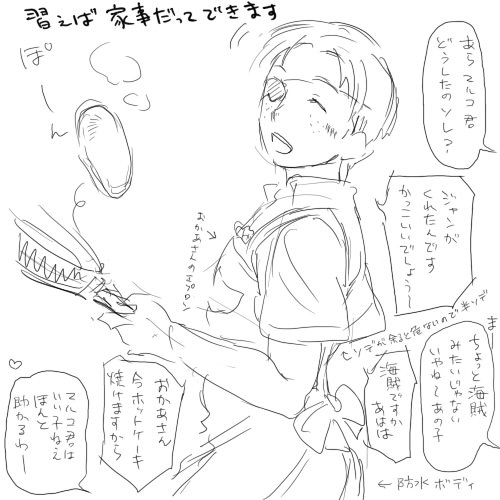 習えば 家事だってできます
あら マルコ君
どうしたのソレ?
ジャンが
くれたんです
かっこいいでしょう~
ま
ちょっと海賊
みたいじゃない
いやね~あの子
海賊ですか
あはは
おかあさん
今ホットケーキ
焼けますから
マルコ君は
いい子ねえ
ほんと
助かるわー
♡
ぽーん
おかあさんのエプロン
←ソデが余ると危ないので半ソデ
←防水ボディ